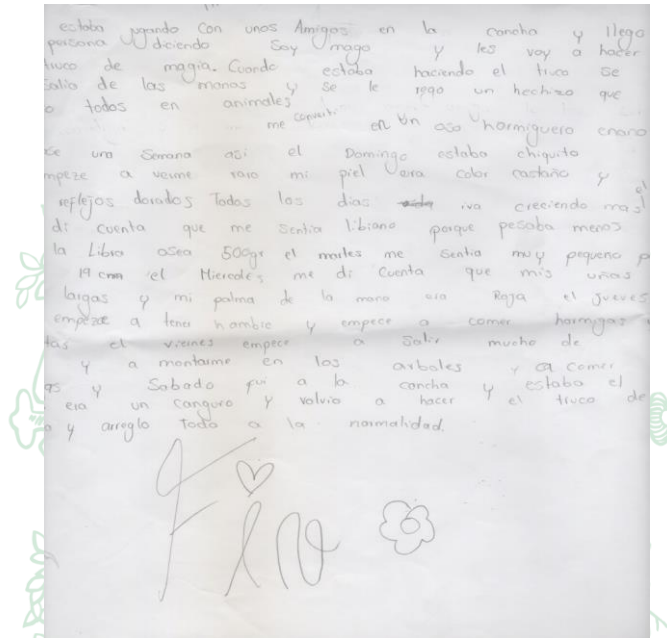 estaba jugando con unos Amigos en la cancha y llego
persona diciendo Soy mago y les voy a hacer
truco de magia. Cuando estaba haciendo el truco se
salio de las manos y se le rego un hechizo que
o todos en animales
me converti en un oso "hormiguero enano
una Semana asi el Domingo estaba chiquito
mpeze a verme raro mi piel era color castaño y
el
reflejos dorados Todos los dias iva creciendo mas
di cuenta que me sentia libiano porque pesaba menos
la Libra osea 500gr el martes me Sentia muy pequeno p
19 cm el Miercoles me di Cuenta que mis uñas
largas y mi palma de la mano era Roja el jueves
empeze a tener hambre y empece a comer hormigas
tas el viernes empece a Salir mucho de
y a montarme en los arboles y a comer
as y Sabado fui a la cancha y estaba el
era un canguro y volvio a hacer el truco de
a y arreglo todo a la normalidad.
Fin